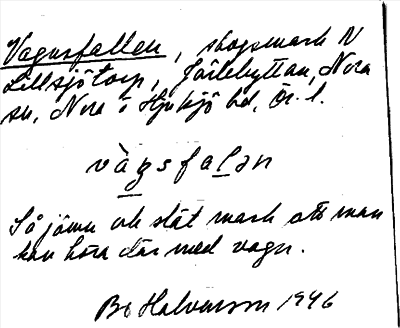 Vagnsfallen, skogsmark N
Lillsjötorp, Järlehyttan, Nora
sn, Nora o Hjulsjö bd, Ör. l.
vàgsfalən
Så jämn och slät mark att man
kan köra där med vagn.
Bo Halvarsson 1946